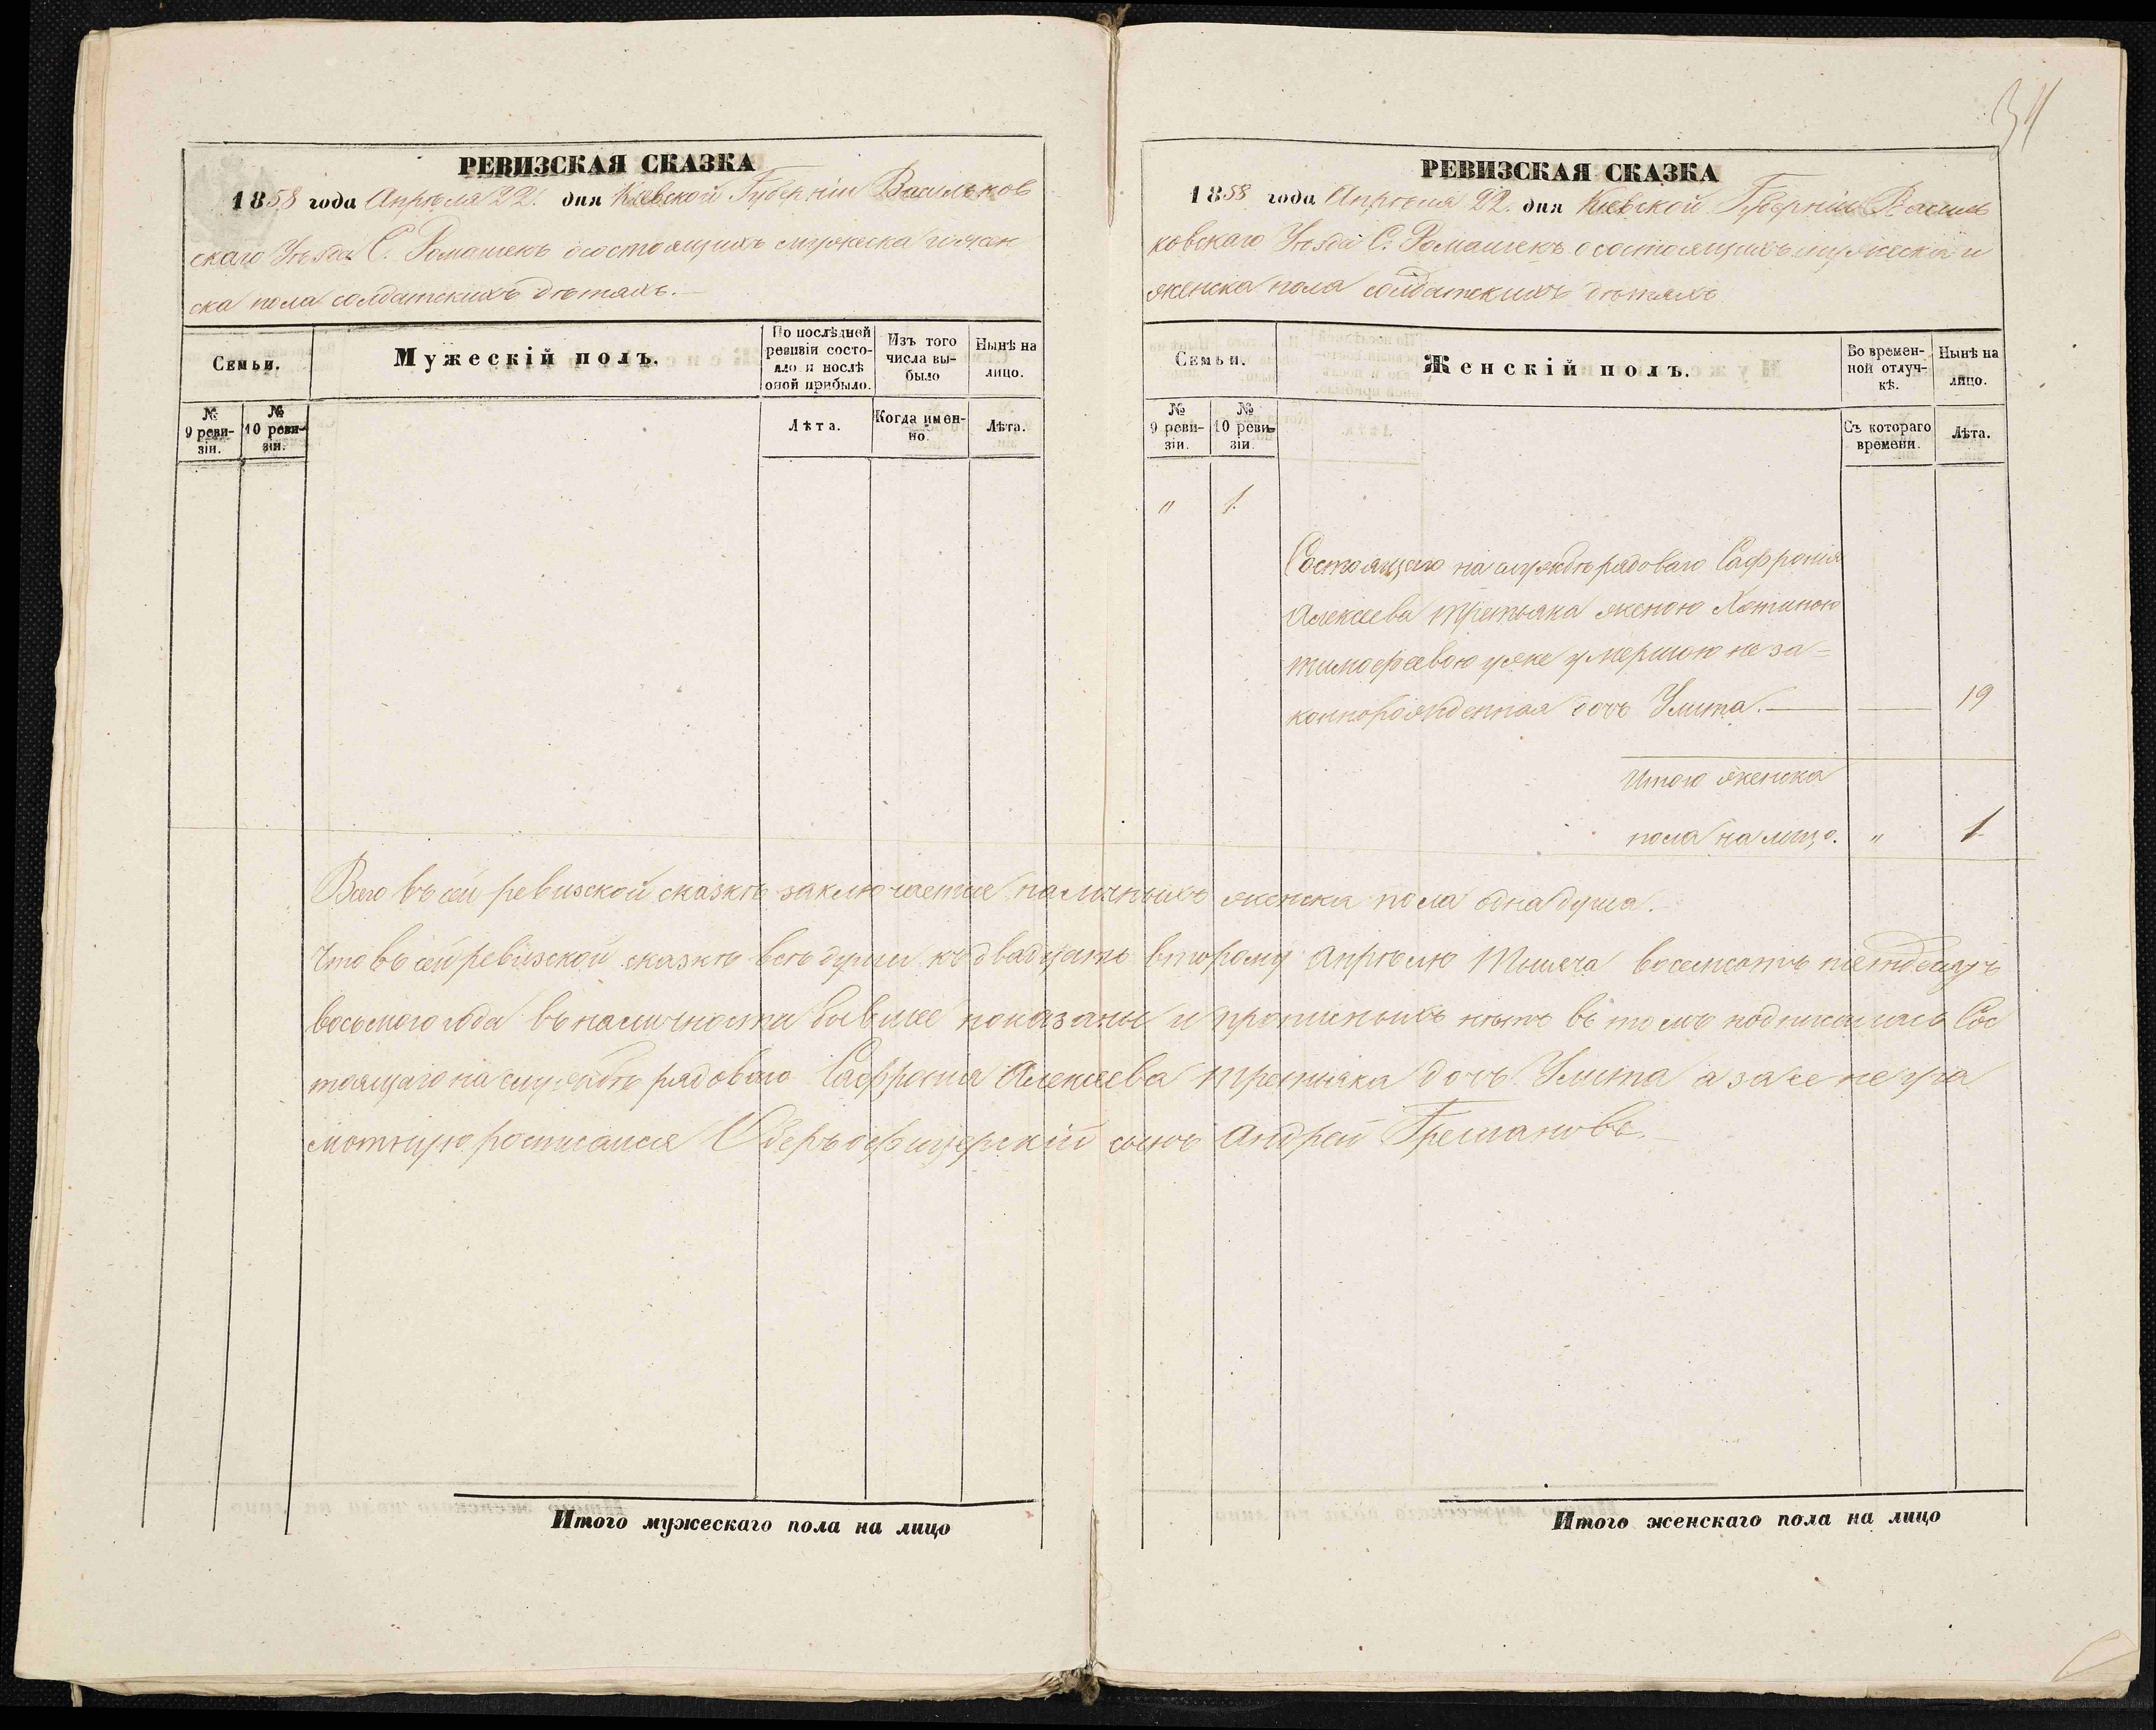 34
РЕВИЗСКАЯ СКАЗКА
1858 года Апрѣля 22. дня Кіевской Губерніи Васильков
скаго Уѣзда С. Ромашекъ о состоящихъ мужеска и жен
ска пола солдатскихъ дѣтяхъ.—
Семьи.
Мужескій полъ.
По послѣдней ревизіи состояло и послѣ оной прибыло.
Изъ того числа выбыло
Нынѣ на лицо.
№ 9 ревизіи.
№ 10 ревизіи.
Лѣта.
Когда именно.
Лѣта.
РЕВИЗСКАЯ СКАЗКА
1858 года Апрѣля 22. дня Кіевской Губерніи Василь
ковскаго Уѣзда С. Ромашекъ о состоящихъ мужеска и
женска пола солдатскихъ дѣтяхъ
Семьи.
Женскій полъ.
Во временной отлучкѣ.
Нынѣ на лицо.
№ 9 ревизіи.
№ 10 ревизіи.
Съ котораго времени.
Лѣта.
" 1.
Состоящаго на службѣ рядоваго Сафронія
Алексеева Третьяка женою Хотиною
тимофеевою уже умершою неза=
коннорожденная дочь Улита.— — 19
Итого женска
пола на лицо. " 1
Всего въ сей ревизской сказкѣ заключается наличныхъ женска пола одна душа.—
Что въ сей ревизской сказкѣ всѣ души къ двадцать второму Апрѣлю Тысяча восемсотъ пятдесятъ
восьмого года въ наличности бывшее показаны и прописныхъ нѣтъ въ томъ подписалась Сос
тоящаго на службѣ рядоваго Сафронія Алексеева Третьяка дочь Улита а за ее негра
мотную росписался Оберъ офицерскій сынъ Андрей
Итого мужескаго пола на лицо
Итого женскаго пола на лицо